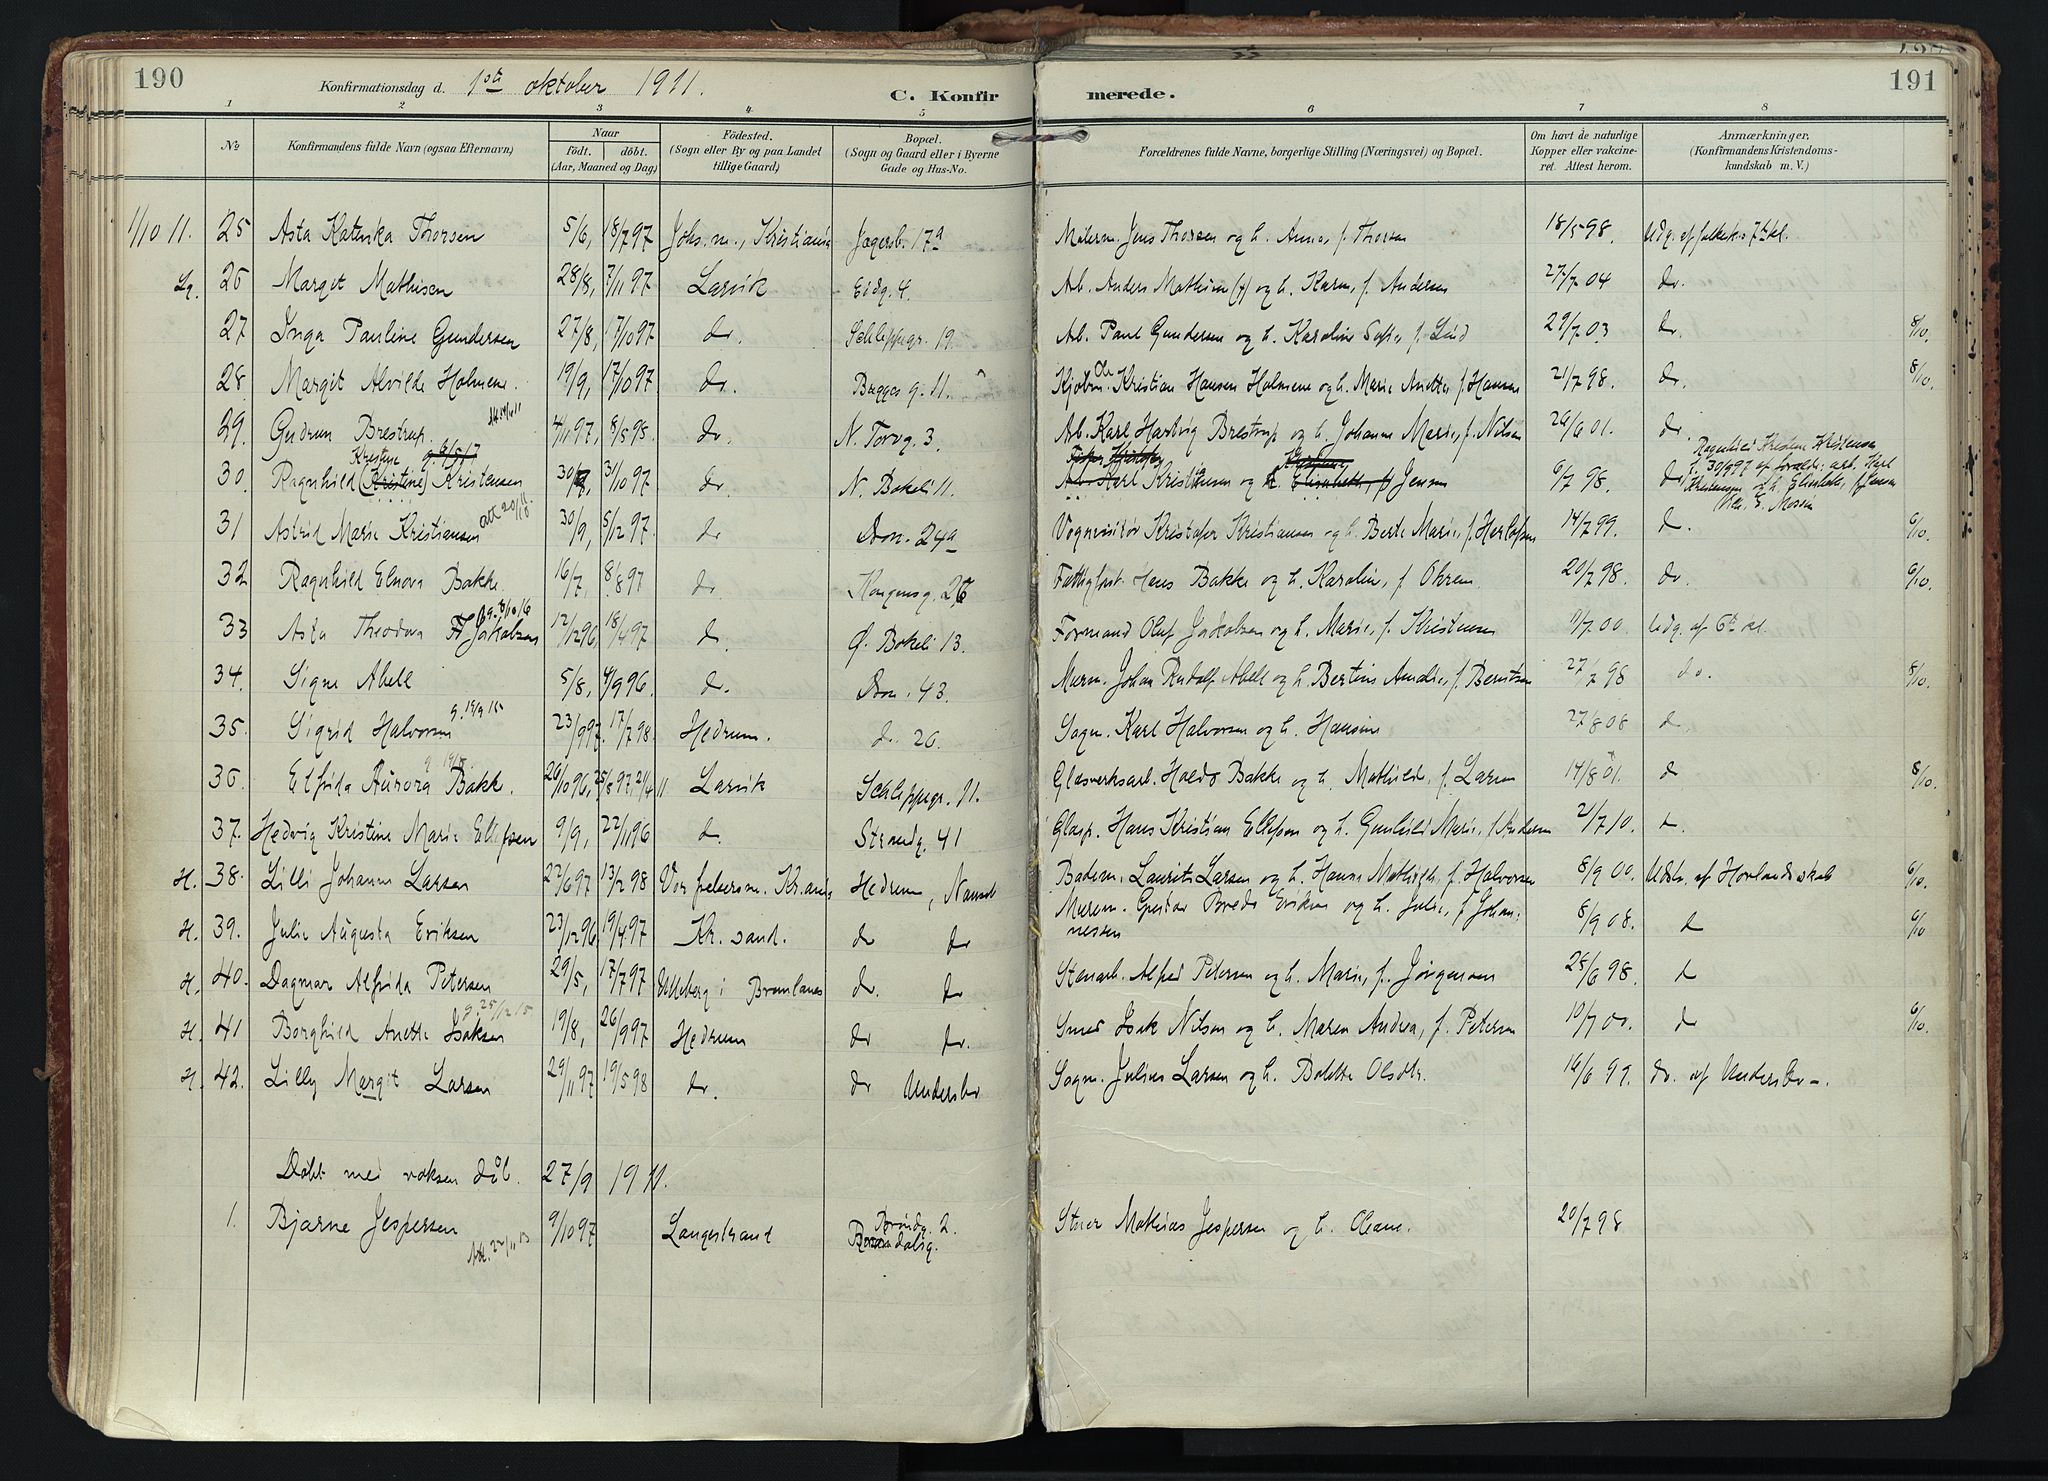 190
Konfirmationsdag d. 1ste oktober 1911.
C. Konfir
merede.
191
1 2 3 4 5 6 7 8
No
Konfirmandens fulde Navn (ogsaa Efternavn)
Naar
födt. döbt.
(Aar, Maaned og Dag)
Födested.
(Sogn eller By og paa Landet
tillige Gaard)
Bopæl.
(Sogn og Gaard eller i Byerne
Gade og Hus-No.
Forældrenes fulde Navne, borgerlige Stilling (Næringsvei) og Bopæl.
Om havt de naturlige
Kopper eller vakcine-
ret. Attest herom.
Anmærkninger,
(Konfirmandens Kristendoms-
kundskab m. V.)
1/10 11. 25 Asta Katinka Thorsen 5/6, 18/7 97 Johs. m., Kristiania Jegersb. 17a Malerm. Jens Thorsen og h. Anna, f. Thorsen 18/5 98. Udg. af folkesk.s 7de kl.
Lg. 26 Margit Mathisen 28/8, 7/11 97 Larvik Eidg. 4. Arb. Anders Mathisen (†) og h. Karen, f. Andersen 27/7 04 do.
27 Inga Pauline Gundersen 27/8, 17/10 97 do. Schleppegr. 19. Arb. Paul Gundersen og h. Karoline Sofie, f. Lind 29/7 03 do 8/10.
28. Margit Alvilde Holmene. 19/9, 17/10 97. do. Bugges g. 11. Kjøbm. Ole Kristian Hansen Holmene og h. Marie Anette, f. Hansen 21/7 98. do. 8/10.
29. Gudrun Brestrup. 4/11 97, 8/5 98. do. N. Torvg. 3. Arb. Karl Hartvig Brestrup og h. Johanne Marie, f. Nilsen 26/6 01. do.
30. Ragnhild (Kristine) Kristensen 30/9, 31/10 97 do. N. Bøkeli 11. Arb. Karl Kristensen og h. Elisabeth, f. Jensen 6/7 98. do
Kristine g. 6/5 17
Ragnhild Kristine Kristensen
f. 30/9 97 af foreldre: arb. Karl
Kristensen og h. Elisabeth, f. Jensen
31 Astrid Marie Kristiansen att 20/11 18. 30/9, 5/12 97. do Do. 24a Vognvisitør Kristofer Kristiansen og h. Berte Marie, f. Herlofsen 14/7 99. do. 6/10.
32 Ragnhild Elnora Bakke. 16/7, 8/8 97 do. Kongensg. 26 Fattigforst. Hans Bakke og h. Karoline, f. Ohren 20/7 98. do. 6/10.
33 Asta Theodora Jakobsen g. 8/10 16 12/12 96, 18/4 97 do. Ø. Bøkeli 13. Formand Oluf Jakobsen og h. Marie, f. Kristensen 9/7 00. Udg. af 6te kl.
34. Signe Abell 5/8, 4/9 96. do. Do. 43 Murm. Johan Rudolf Abell og h. Bertine Amalie, f. Berntsen 27/7 98 do. 8/10.
35. Sigrid Halvorsen g. 19/9 15 23/9 97. 17/7 98. Hedrum. do. 26. Sagm. Karl Halvorsen og h. Hansine 27/8 08 do
36. Elfrida Aurora Bakke. 26/10 96, 25/8 97, 21/4 11 Larvik Schleppegr. 11. Glasverksarb. Haldo Bakke og h. Mathilde, f. Larsen 14/8 01. do 8/10.
37. Hedvig Kristine Marie Ellefsen 9/9, 22/11 96 do. Strandg. 41 Glasp. Hans Kristian Ellefsen og h. Gunhild Marie, f. Andersen 21/7 10. do.
H. 38. Lilli Johanne Larsen 22/6 97 13/2 98 Vor frelsersm. Kr.ania Hedrum, Nanset Badem. Laurits Larsen og h. Hanna Mathilde, f. Halvorsen 8/9 00. Udskr. af Hovlandsskole 6/10.
H. 39. Julie Augusta Eriksen 23/12 96 19/4 97 Kr. sand. do do Murem. Gustav Bredo Eriksen og h. Julie, f. Johan-
nessen 8/9 08. do 6/10
H. 40. Dagmar Alfrida Petersen 29/5, 17/7 97 i Brunlanes do. do Stenarb. Alfred Petersen og h. Marie, f. Jørgensen 28/6 98. do
H. 41 Borghild Anette Isaksen g. 25/12 15 19/8, 26/9 97 Hedrum do do. Smed Isak Nilsen og h. Maren Andrea, f. Petersen 10/7 00. do 6/10.
H. 42. Lilly Margit Larsen 29/11 97 19/5 98 do. do Undersbo Sagm. Julius Larsen og h. Bolette Olsdtr. 16/6 99. do. af Undersbo -.
Døbt med voksen dåb. 27/9 1911.
1. Bjarne Jespersen Att. 22/11 13 9/10 97 Langestrand Brøndg. 2. Stuer Mathias Jespersen og h. Oleane. 20/7 98